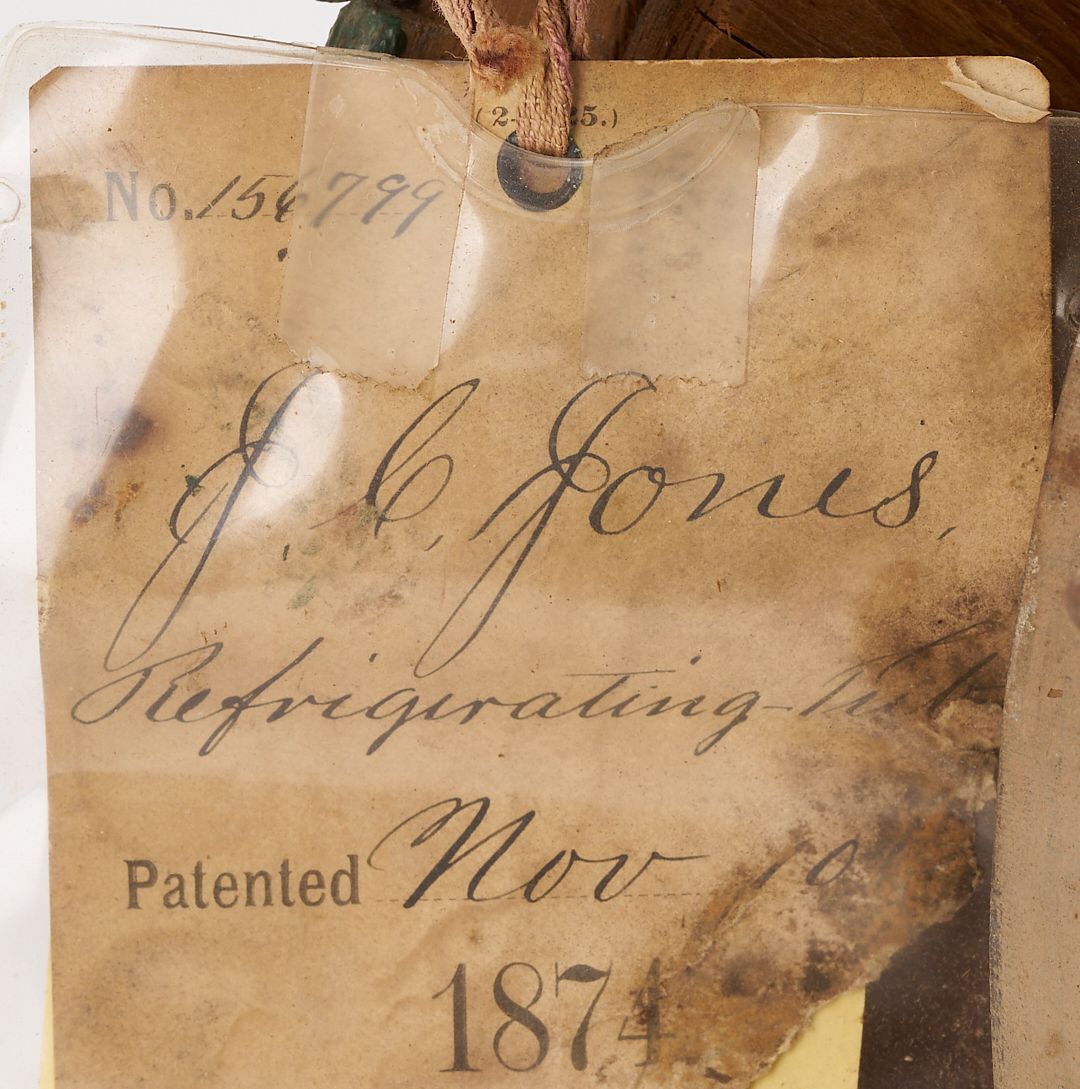 (2-525.)
No. 156799
J. C. Jones,
Refrigerating-Tub
Patented Nov 10
1874.